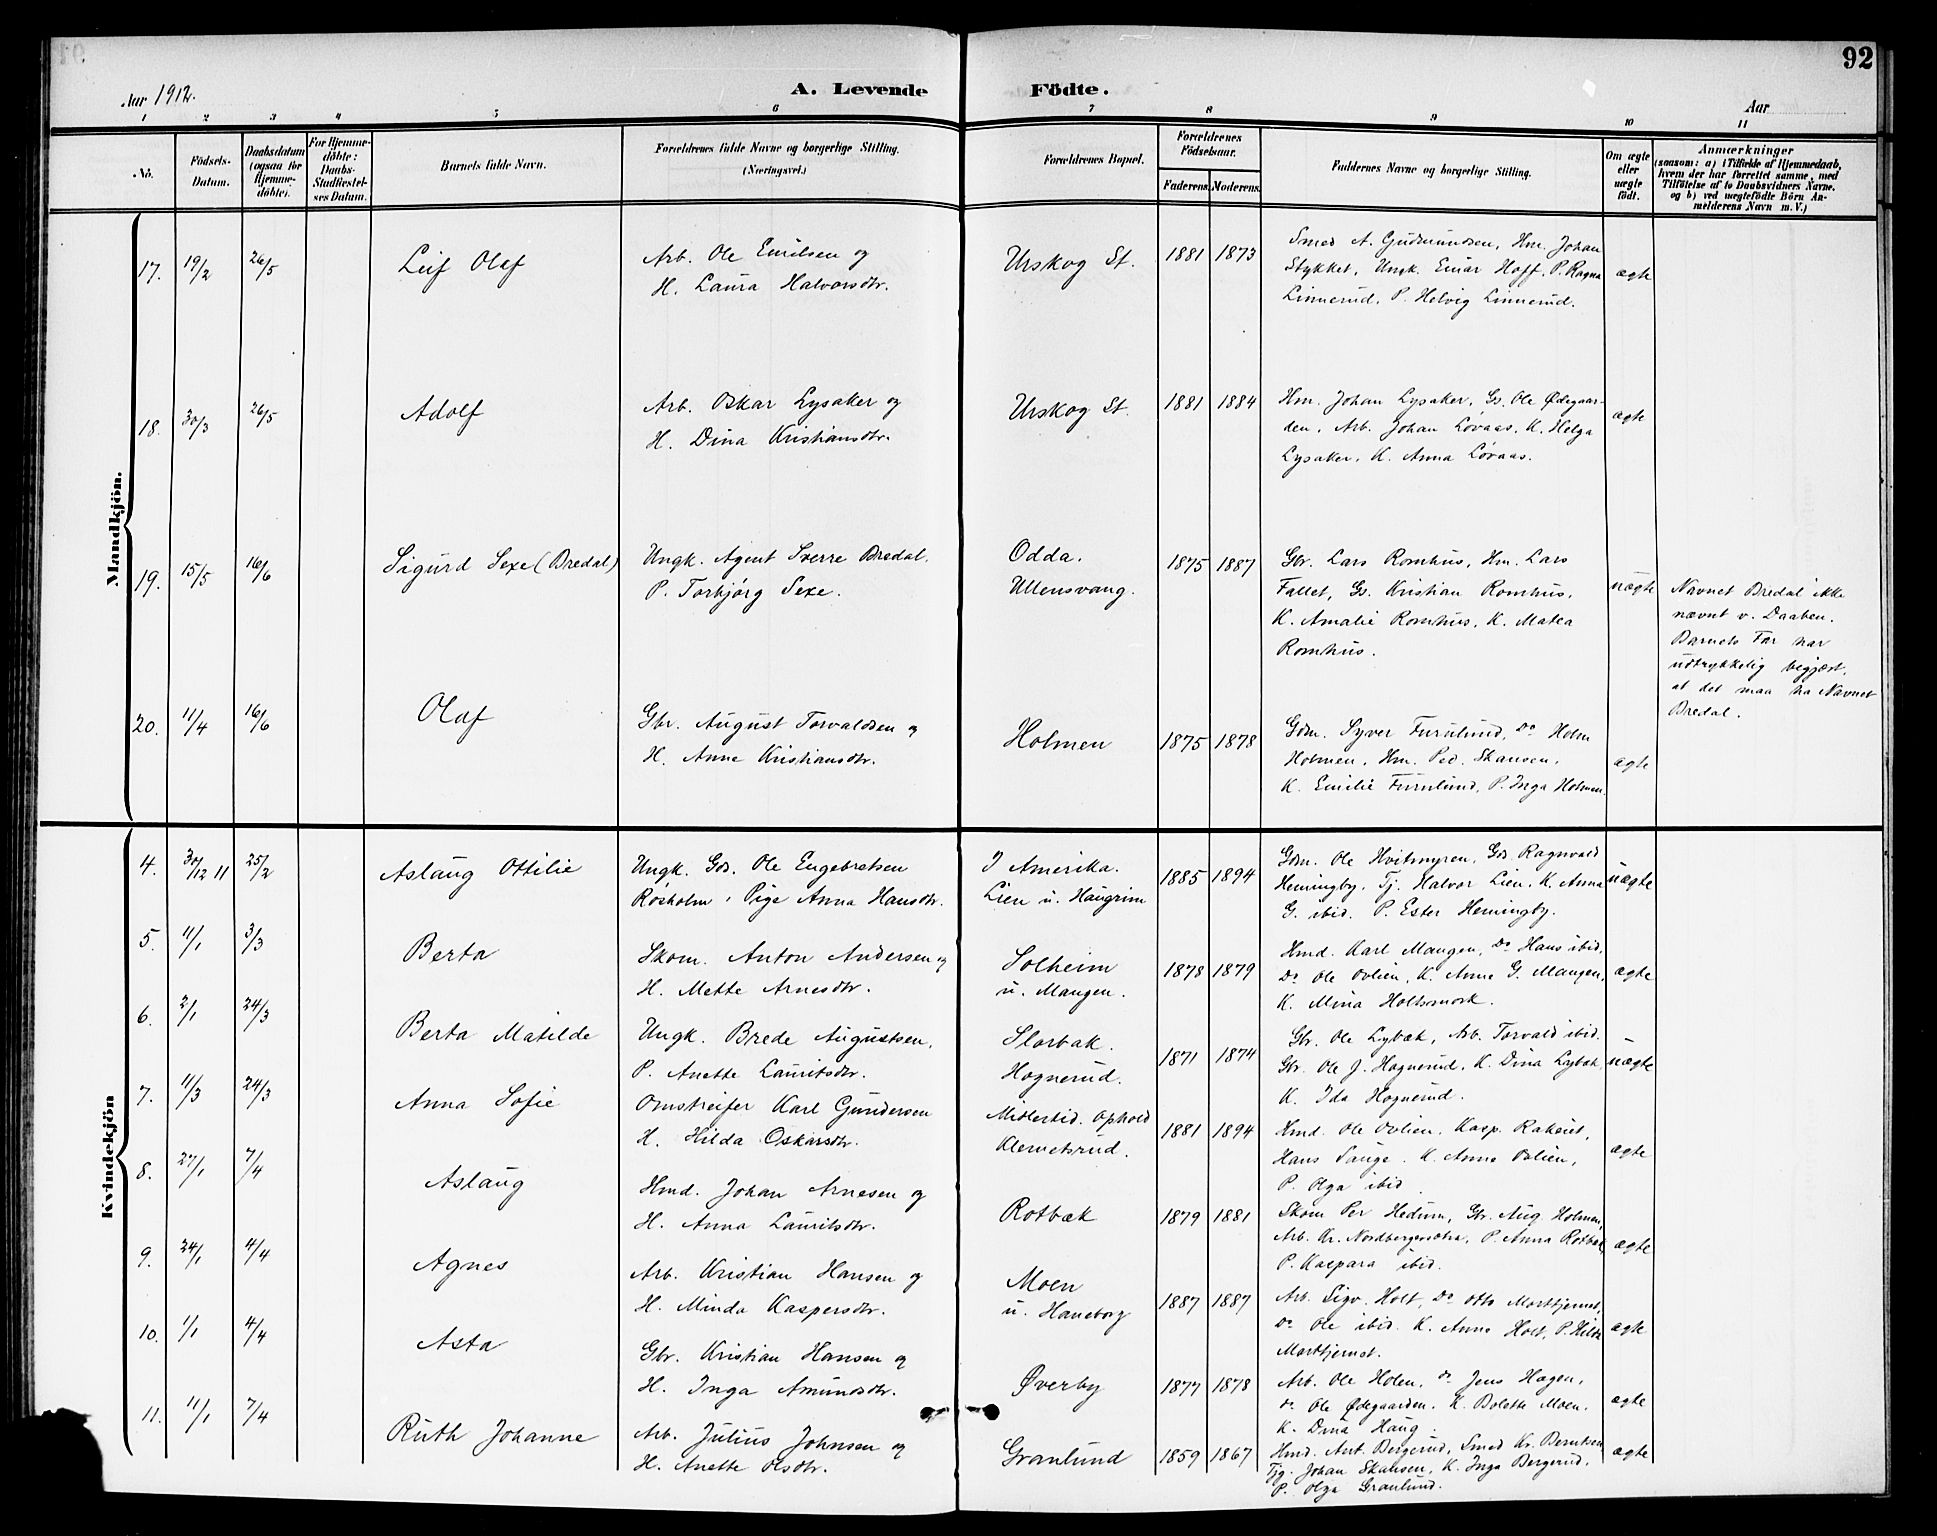 92
Aar 1912.
A. Levende Födte.
Aar
1 2 3 4 5 6 7 8 9 10 11
No.
Födsels-
Datum.
Daabsdatum
(ogsaa for
Hjemme-
döbte).
For Hjemme-
döbte:
Daabs-
Stadfæstel-
ses Datum.
Barnets fulde Navn.
Forældrenes fulde Navne og borgerlige Stilling.
(Næringsvei.)
Forældrenes Bopæl.
Forældrenes
Födselsaar.
Faderens. Moderens.
Faddernes Navne og borgerlige Stilling.
Om ægte
eller
uægte
födt.
Anmærkninger
(saasom: a) i Tilfælde af Hjemmedaab,
hvem der har forrettet samme, med
Tilföielse af to Daabsvidners Navne.
og b) ved uægtefödte Börn An-
melderens Navn m. V.)
Mandkjön.
17. 19/2 26/5 Leif Olaf
Arb. Ole Emilsen og
H. Laura Halvorsdtr.
Urskog St. 1881 1873
Smed A. Gudmundsen, Hm. Johan
Stykket, Ungk. Einar Hoff, P. Ragna
Linnerud, P. Helvig Linnerud.
ægte
18. 30/3 26/5 Adolf
Arb. Oskar Lysaker og
H. Dina Kristiansdtr.
Urskog St. 1881 1884
Hm. Johan Lysaker, Gs. Ole Ødegaar-
den, Arb. Johan Løvaas, K. Helga
Lysaker, K. Anna Løvaas.
ægte
19. 15/5 16/6 Sigurd Sexe (Bredal)
Ungk. Agent Sverre Bredal.
P. Torbjørg Sexe.
Odda.
Ullensvang.
1875 1887
Gbr. Lars Romhus, Hm. Lars
Fallet, Gs. Kristian Romhus,
K. Amalie Romhus, K. Matea
Romhus.
uægte
Navnet Bredal ikke
nævnt v. Daaben.
Barnets Far har
udtrykkelig begjært,
at det maa ha Navnet
Bredal.
20. 11/4 16/6 Olaf
Gbr. August Torvaldsen og
H. Anne Kristiansdtr.
Holmen 1875 1878
Gdm. Syver Furulund, Do Holm
Holmen, Hm. Ped. Skansen,
K. Emilie Furulund, P. Inga Holmen.
ægte
Kvindekjön
4. 30/12 11 25/2 Aslaug Ottilie
Ungk. Gds. Ole Engebretsen
Røsholm, Pige Anna Hansdtr.
I Amerika.
Lien u. Haugrim
1885 1894
Gdm. Ole Hvitmyren, Gds. Ragnvald
Hemingby, Tj. Halvor Lien, K. Anna
G. ibid. P. Ester Hemingby.
uægte
5. 11/1 3/3 Berta
Skom. Anton Andersen og
H. Mette Arnesdtr.
Solheim
u. Mangen.
1878 1879
Hmd. Karl Mangen, Do Hans ibid.
Do Ole Ovlien, K. Anne G. Mangen,
K. Mina Holtsmork.
ægte
6. 2/1 24/3 Berta Matilde
Ungk. Brede Augustsen,
P. Anette Lauritsdtr.
Slorbak.
Hognerud.
1871 1874
Gbr. Ole Lybæk, Arb. Torvald ibid.
Gbr. Ole J. Hognerud, K. Dina Lybæk,
K. Ida Hognerud.
uægte
7. 11/3 24/3 Anna Sofie
Omstreifer Karl Gundersen
H. Hilda Oskarsdtr.
Midlertid. Ophold
Klemetsrud.
1881 1894
Hmd. Ole Ovlien, Kasp. Rakeiet,
Hans Tange. K. Anne Ovlien,
P. Olga ibid.
ægte
8. 27/1 7/4 Aslaug
Hmd. Johan Arnesen og
H. Anna Lauritsdtr.
Rotbæk 1879 1881
Skom Per Hedum, Gbr. Aug. Holmen,
Arb. Kr. Nordbergsætra, P. Anna Rotbæk,
P. Kaspara ibid.
ægte
9. 24/1 4/4 Agnes
Arb. Kristian Hansen og
H. Minda Kaspersdtr.
Moen
u. Haneborg
1887 1887
Arb. Sigv. Holt, Do Otto Morttjernet,
Do Ole ibid. K. Anne Holt, P. Hilda
Morttjernet.
ægte
10. 1/1 4/4 Asta
Gbr. Kristian Hansen og
H. Inga Amundsdtr.
Øverby 1877 1878
Arb. Ole Holen, do Jens Hagen,
do Ole Ødegaarden. K. Bolette Moen,
K. Dina Haug.
ægte
11. 11/1 7/4 Ruth Johanne
Arb. Julius Johnsen og
H. Anette Olsdtr.
Granlund 1859 1867
Hmd. Ant. Bergerud, Smed Kr. Berntsen,
Tjg. Johan Skansen, K. Inga Bergerud,
P. Olga Granlund.
ægte